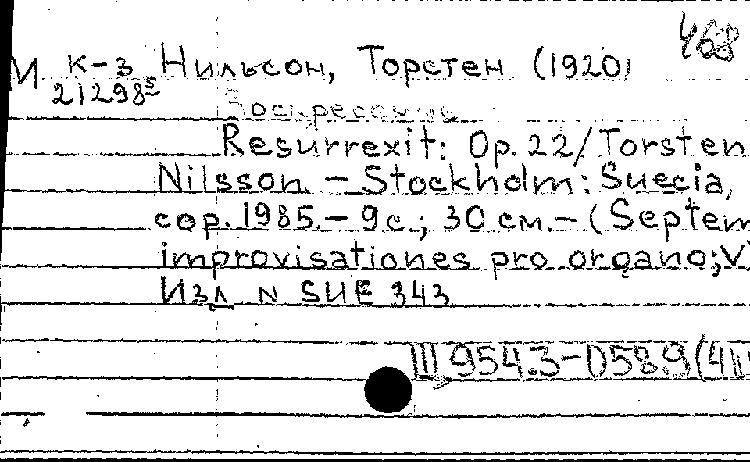 468
М К-3 Нильсон, Торстен (1920)
21298⁵
Воскресение
Resurrexit: Op. 22/Torsten
Nilsson. – Stockholm: Suecia,
cop. 1985. – 9 с.; 30 см. – (Septem
improvisationes pro organo; V
Изд N SUE 343
III 954.3-058.9(4Ш